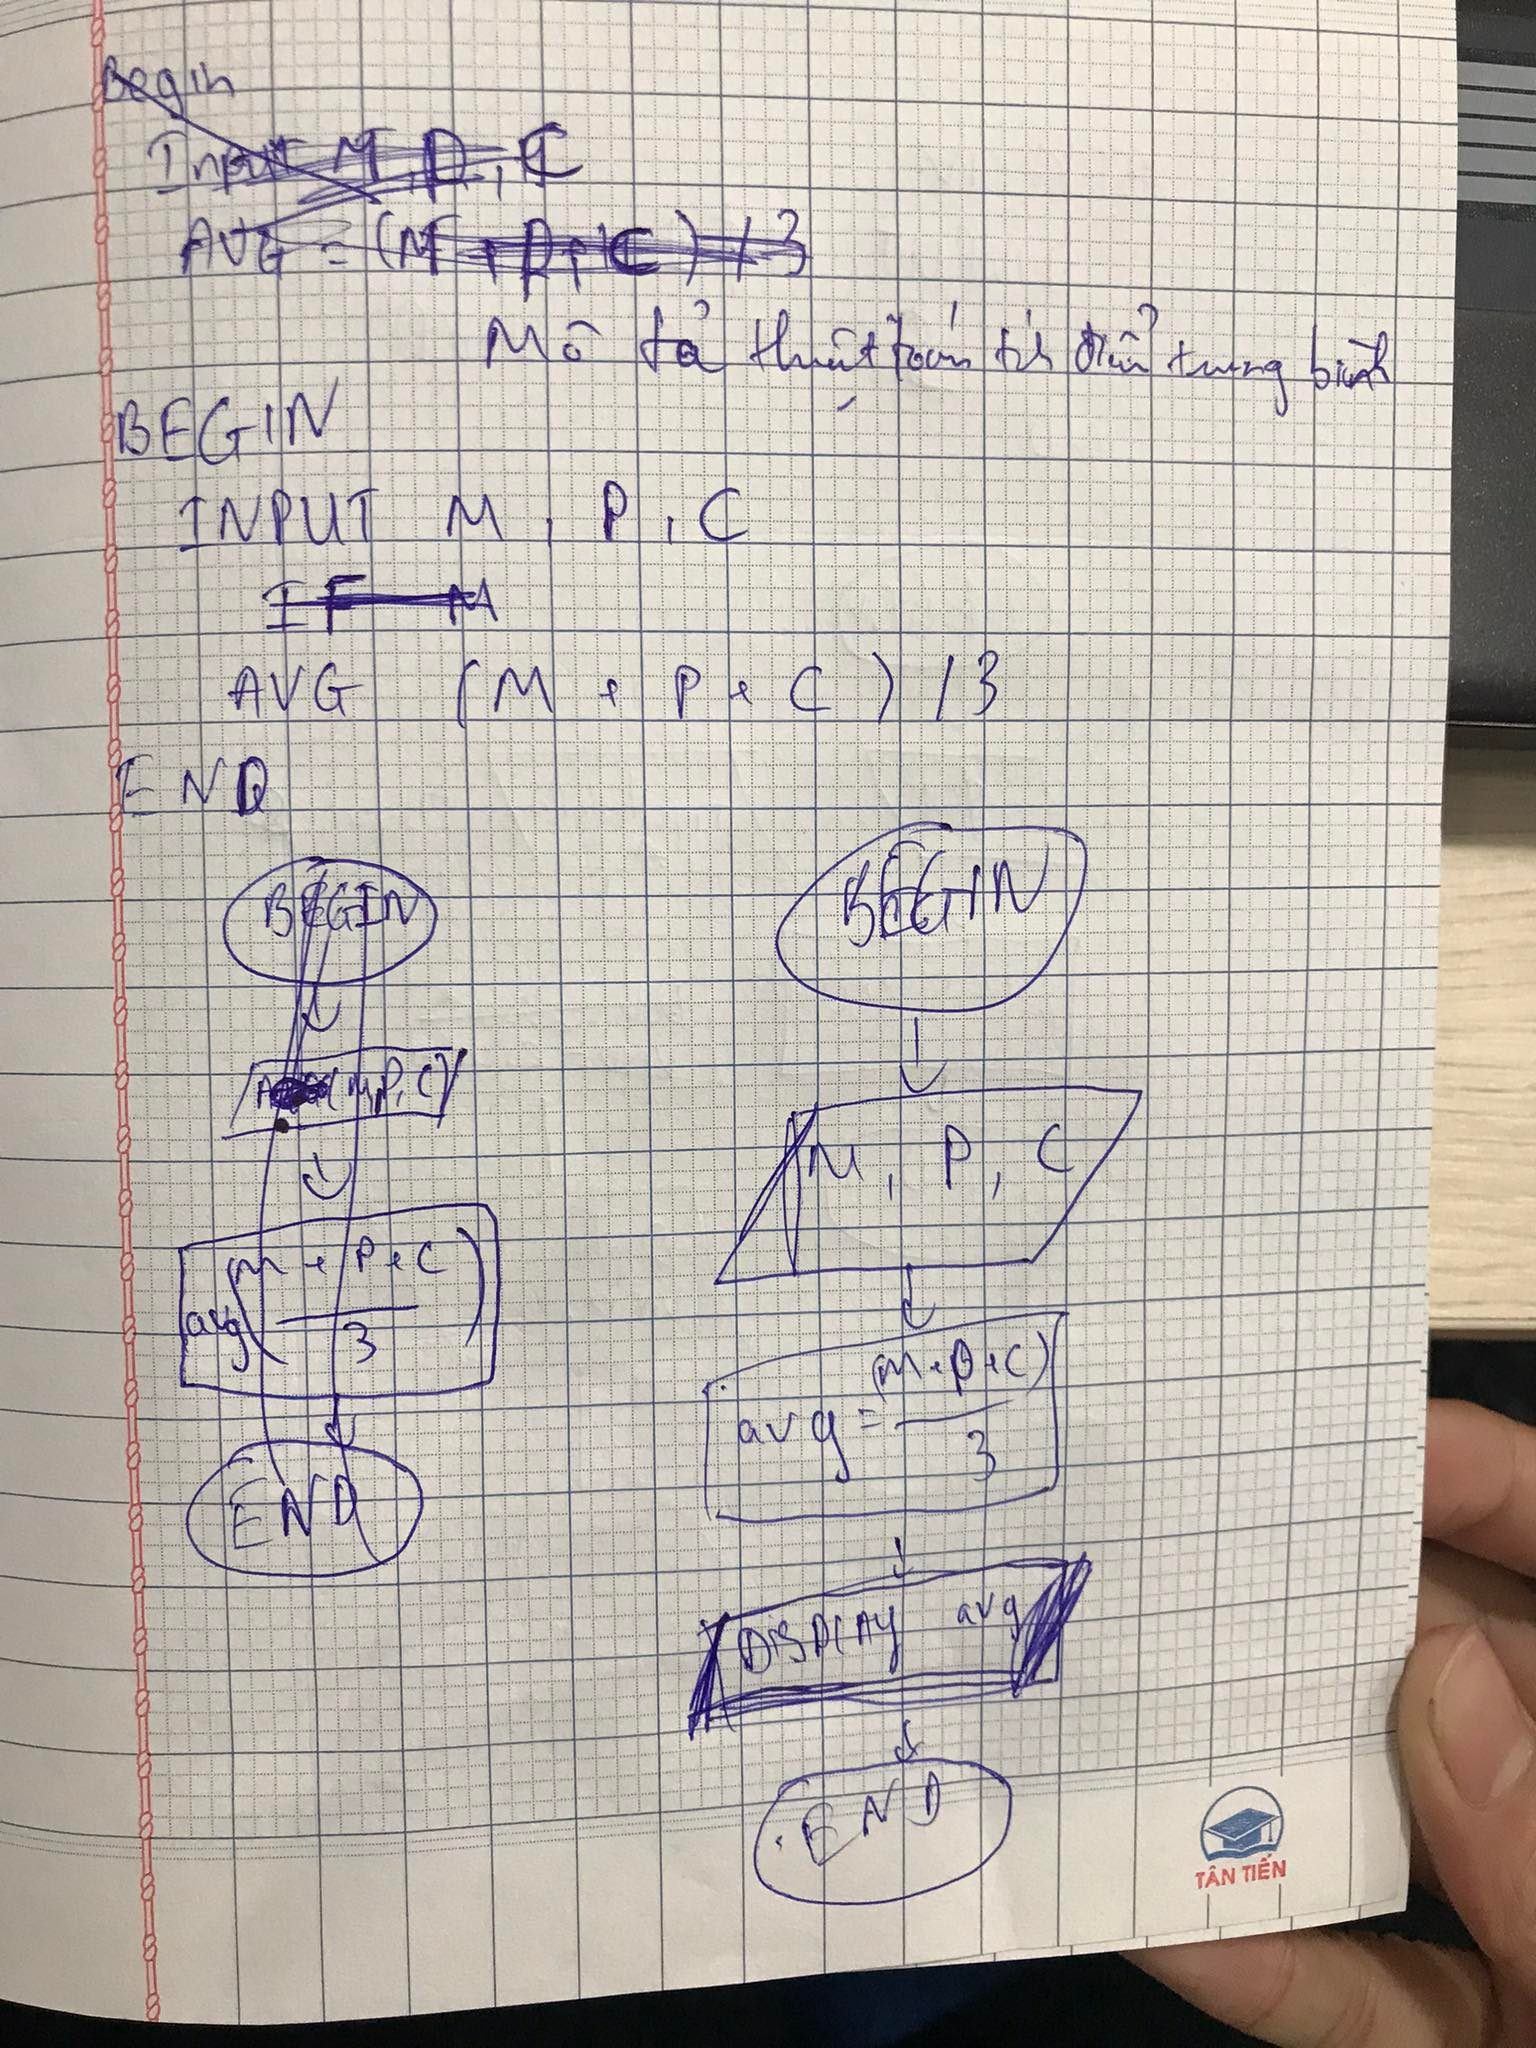 Begin
Input M, P, C
AVG = (M + P + C) / 3
Mô tả thuật toán tính điểm trung bình
BEGIN
INPUT M, P, C
IF M
AVG (M + P + C) / 3
END
BEGIN
(M, P, C)
avg (m + P + C / 3)
END
BEGIN
M, P, C
avg = (m + P + C) / 3
DISPLAY avg
END
TÂN TIẾN